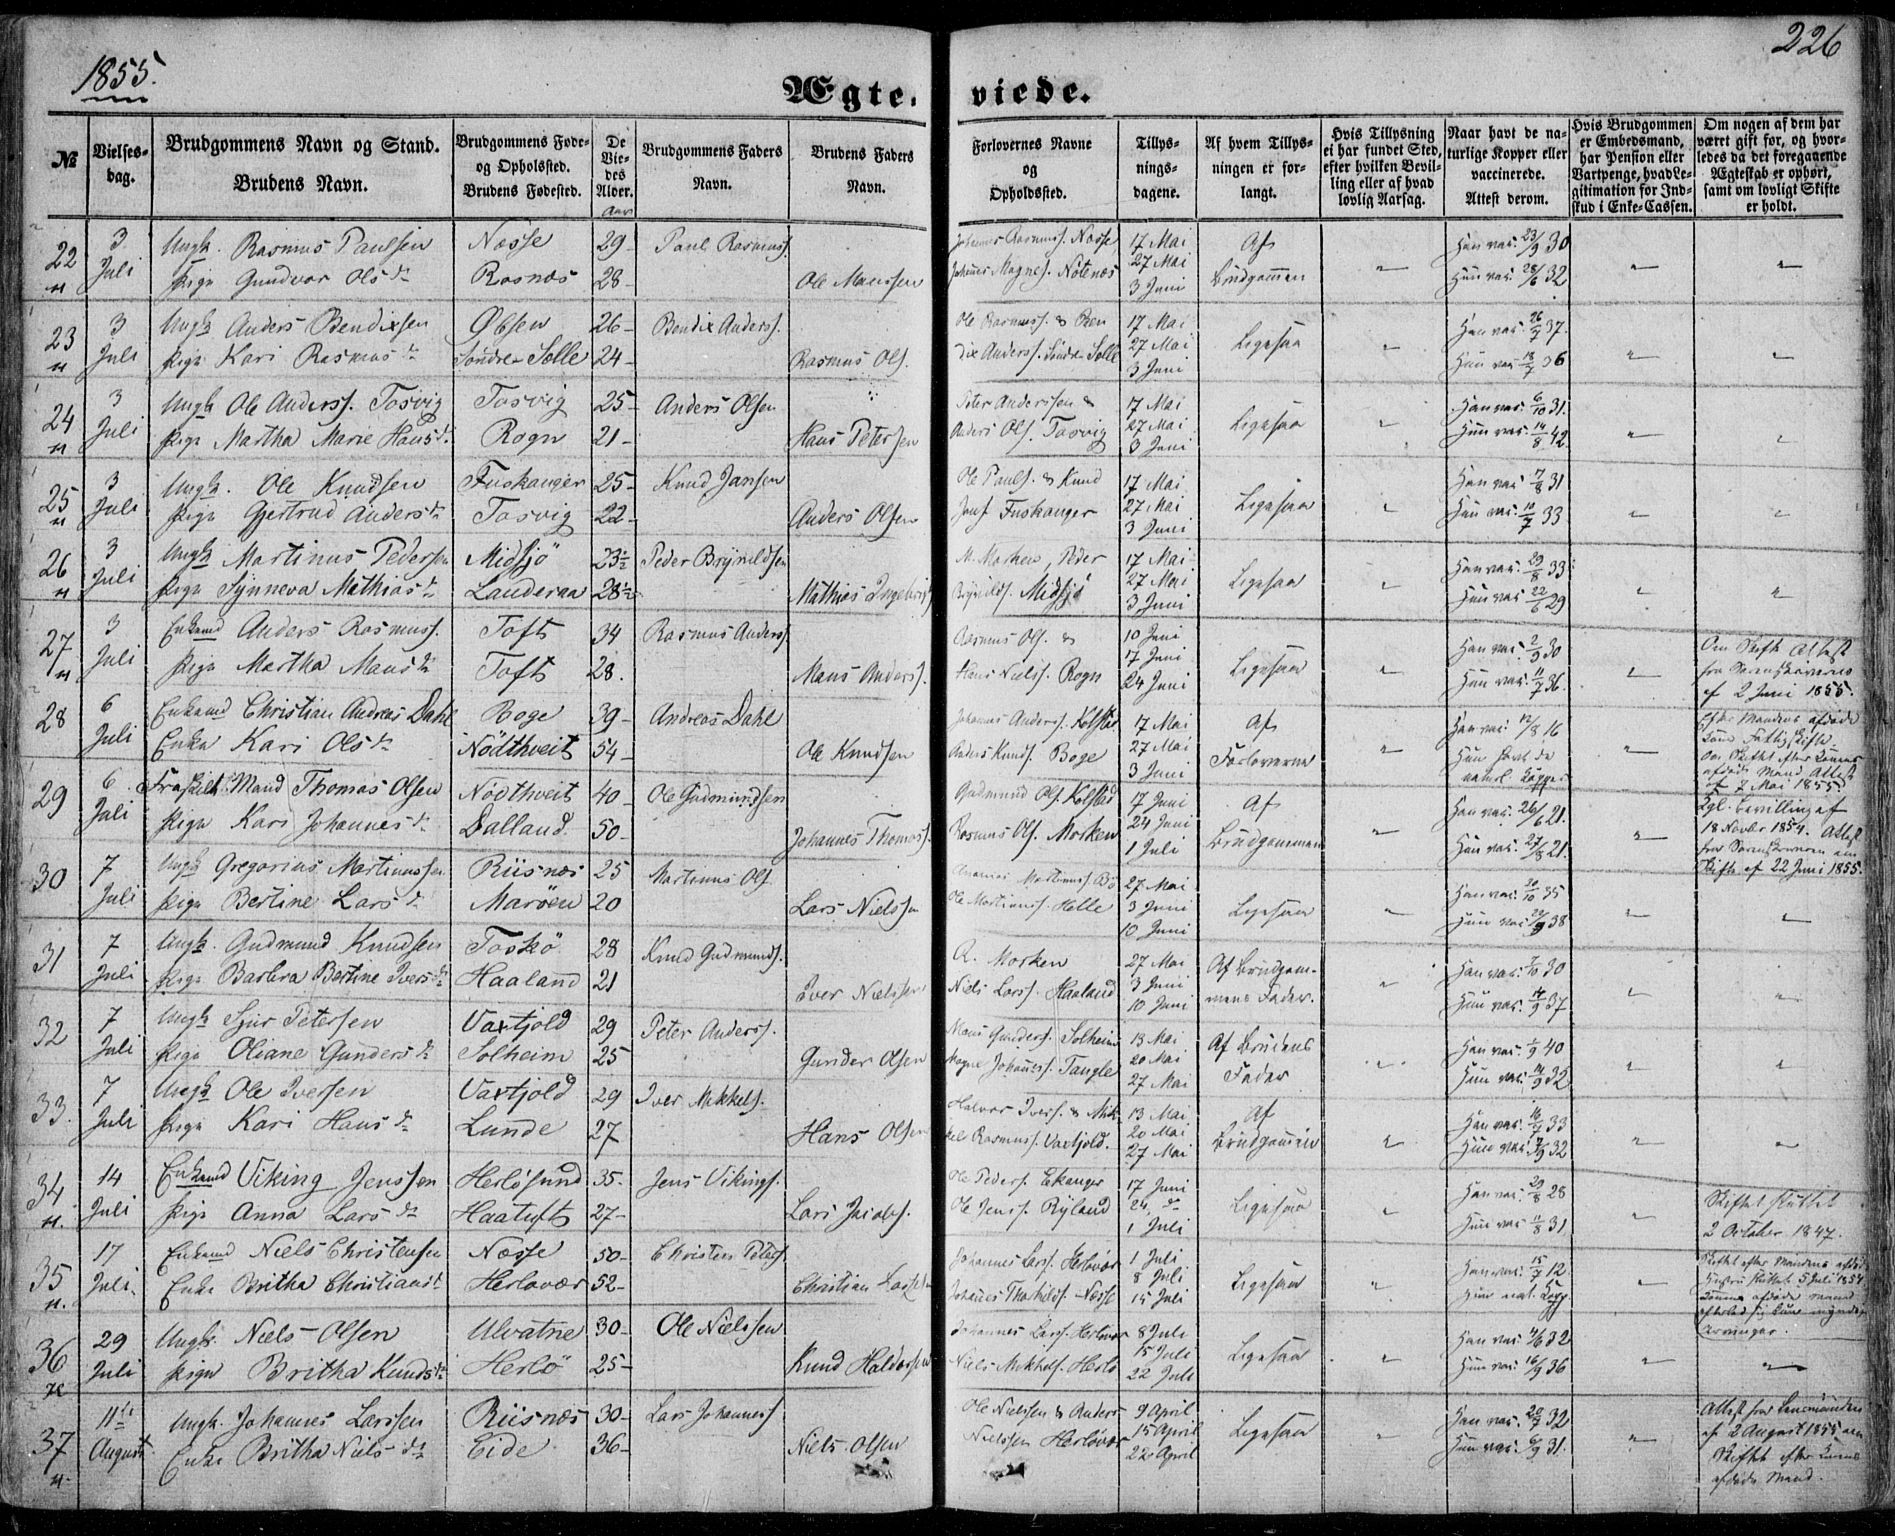 1855.
226
Ægte-viede.
№
Vielses-dag.
Brudgommens Navn og Stand.
Brudens Navn.
Brudgommens Føde- og Opholdssted.
Brudens Fødested.
De Vie-des Alder.
Aar
Brudgommens Faders Navn.
Brudens Faders Navn.
Forlovernes Navne og Opholdssted.
Tillys-nings-dagene.
Af hvem Tillys-ningen er for-langt.
Hvis Tillysning ei har fundet Sted, efter hvilken Bevil-ling eller af hvad lovlig Aarsag.
Naar havt de na-turlige Kopper eller vaccinerede.
Attest derom.
Hvis Brudgommen er Embedsmand, har Pension eller Vartpenge, hvad Le-gitimation for Ind-skud i Enke-Cassen.
Om nogen af dem har været gift for, og hvor-ledes da det foregaaende Ægteskab er ophørt, samt om lovligt Skifte er holdt.
22 3 Juli Ungk. Rasmus Paulsen Næsse 29 Paul Rasmuss. Johannes Rasmuss. Næsse 17 Mai Af Han vac. 23/9 30
Pige Gundvor Olsdr Rosnæs 28 Ole Monssen Johannes Magnes. Nötenæs 27 Mai 3 Juni Brudgommen Hun vac. 28/6 32
23 3 Juli Ungk Anders Bendixsen Öbsen 26 Bendix Anderss. Ole Rasmuss. & Ben 17 Mai Ligesaa Han vac. 26/7 37.
Pige Kari Rasmusdr Söndre Solle 24 Rasmus Ols. dix Anderss. Söndre Solle 27 Mai 3 Juni Hun vac. 18/7 36
24 3 Juli Ungk Ole Anderss. Tosvig Tosvig 25 Anders Olsen Peter Anderssen & 17 Mai Ligesaa Han vac. 6/10 31.
Pige Martha Marie Hansdr. Rogn 21 Hans Petersen Anders Ols. Tosvig 27 Mai 3 Juni Hun vac. 14/8 42.
25 3 Juli Ungk. Ole Knudsen Fuskanger 25 Knud Jansen Ole Pauls. & Knud 17 Mai Ligesaa Han vac. 7/8 31
Pige Gjertrud Andersdr Tosvig 22 Anders Olsen Jans. Fuskanger 27 Mai 3 Juni Hun vac. 10/7 33
26 3 Juli Ungk Martinus Pedersen Midsjö 23½ Peder Brynildsen M. Morken, Peder 17 Mai Ligesaa Han vac. 29/8 33
Pige Synneva Mathiasdr Landeraa 28½ Mathias Ingebrigts Brynilds. Midsjö 27 Mai 3 Juni Hun vac. 22/6 29
27 3 Juli Enkemd Anders Rasmuss. Tofts 34 Rasmus Anderss. Rasmus Ols. & 10 Juni Ligesaa Han vac. 2/9 30 Om Skifte Attest
Pige Martha Monsdr Tofts 28. Mons Anderss. Hans Nielss. Rogn 17 Juni 24 Juni Hun vac. 11/7 36. fra Sorenskriveren af 2 Juni 1855.
28 6 Juli Enkemd Christian Andreas Dahl Boge 39 Andreas Dahl Johannes Anders. Kolstad 17 Mai Af Han vac. 12/8 16
Enke Kari Olsdr Nödthveit 54 Ole Knudsen Anders Knuds. Boge 27 Mai 3 Juni Forloverne Hun havt de naturl. Kopper
Efter Mandens afdöde Kone Fattigskifte. Om Skifte efter Konens afdöde Mand Attest af 7 Mai 1855.
29 6 Juli Fraskilt Mand Thomas Olsen Nödthveit 40 Ole Gudmundsen Gudmund Ols. Kolstad 17 Juni Af Han vac. 26/6 21.
Pige Kari Johannesdr Dalland. 50 Johannes Thomass. Rasmus Ols. Morken 24 Juni 1 Juli Brudgommen Hun vac. 27/8 21.
Kgl. Bevilling af 18 Novbr 1854. Attest fra Sorenskriveren om Skifte af 22 Juni 1855.
30 7 Juli Ungk Gregorius Martinussen Riisnæs 25 Martinus Ols. Martinuss. Bö 27 Mai Ligesaa Han vac. 20/10 35
Pige Bertine Larsdr Maröen 20 Lars Nielssen Ole Martinuss. Helle 3 Juni 10 Juni Hun vac. 29/9 38
31 7 Juli Ungk. Gudmund Knudsen Toskö 28 Knud Gudmunds. R. Morken 27 Mai Af Brudgom- Han vac. 7/10 30
Pige Barbra Bertine Iversdr Haaland 21 Iver Nielssen Niels Larss. Haaland 3 Juni 10 Juni mens Fader. Hun vac. 14/9 37.
32 7 Juli Ungk Sjur Petersen Vaxtjold 29 Peter Anderss. Mons Gunders. Solheim 13 Mai Af Brudens Han vac. 1/9 40
Pige Oliane Gundersdr Solheim 25 Gunder Olsen Magne Johanness. Tangle 20 Mai 27 Mai Fader Hun vac. 14/9 32
33. 7 Juli Ungk Ole Iversen Vaxtjold 29 Iver Mikkels. Halvor Ivers. & Mik 13 Mai Af Han vac. 16/7 33
Pige Kari Hansdr Lunde 27 Hans Olsen kel Rasmuss. Vaxtjold. 20 Mai 27 Mai Brudgommen Hun vac. 9/9 32
34 14 Juli Enkemd Viking Jenssen Herlösund 35 Jens Vikings. Ole Peders. Ekanger 17 Juni Ligesaa Han vac. 29/8 28 Skiftet sluttet
Pige Anna Larsdr Haatuft 27 Lars Jacobs. Ole Jenss. Ryland 24 do 1 Juli Hun vac. 11/8 31 2 October 1847.
35 17 Juli. Enkemd Niels Christensen Næsse 50 Christen Peters. Johannes Larss. Herlövær 1 Juli Ligesaa Han vac. 15/7 12
Enke Britha Christiansdr Herlövær 52 Christian Larssen Johannes Thorkilds. Næsse 8 Juli 15 Juli Hun nat. Kopp.
Skiftet efter Mandens afdöde Hustru sluttet 5 Juli 1854 Konens afdöde Mand efterlod sig kun myndige Arvinger.
36 29 Juli Ungk. Niels Olsen Ulvatne 30 Ole Nielssen Johannes Larss. Herlövær 8 Juli Ligesaa Han vac. 4/6 32
Pige Britha Knudsdr Herlö 25 Knud Haldorsen Niels Mikkels. Herlö 15 Juli 22 Juli Hun vac. 16/9 36
37 11te August Ungk. Johannes Larssen Riisnæs 30 Lars Johanness. Ole Nielssen & Anders 9 April Ligesaa Han vac. 20/7 32
Enke Britha Nielsdr Eide 36 Niels Olsen Nielssen Herlövær 15 April 22 April Hun vac. 6/9 31.
Attest fra Lensmanden af 2 August 1855 om Skiftet efter Konens afdöde Mand.